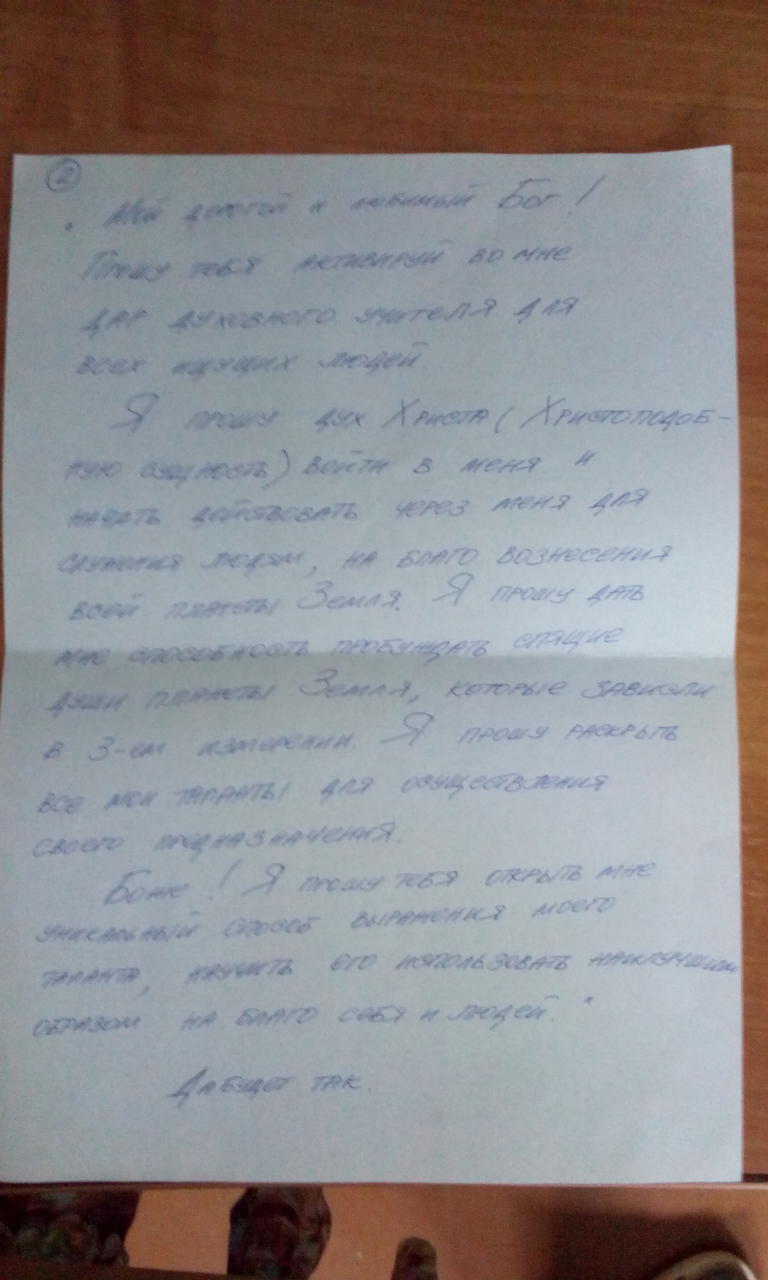 2
" Мой дорогой и любимый Бог!
Прошу тебя активируй во мне
дар духовного учителя для
всех ищущих людей.
Я прошу дух Христа (Христоподоб-
ную сущность) войти в меня и
начать действовать через меня для
служения людям, на благо вознесения
всей планеты Земля. Я прошу дать
мне способность пробуждать спящие
души планеты Земля, которые зависли
в 3-ем измерении. Я прошу раскрыть
все мои таланты для осуществления
своего предназначения.
Боже! Я прошу тебя открыть мне
уникальный способ выражения моего
таланта, научить его использовать наилучшим
образом на благо себя и людей."
Да будет так.